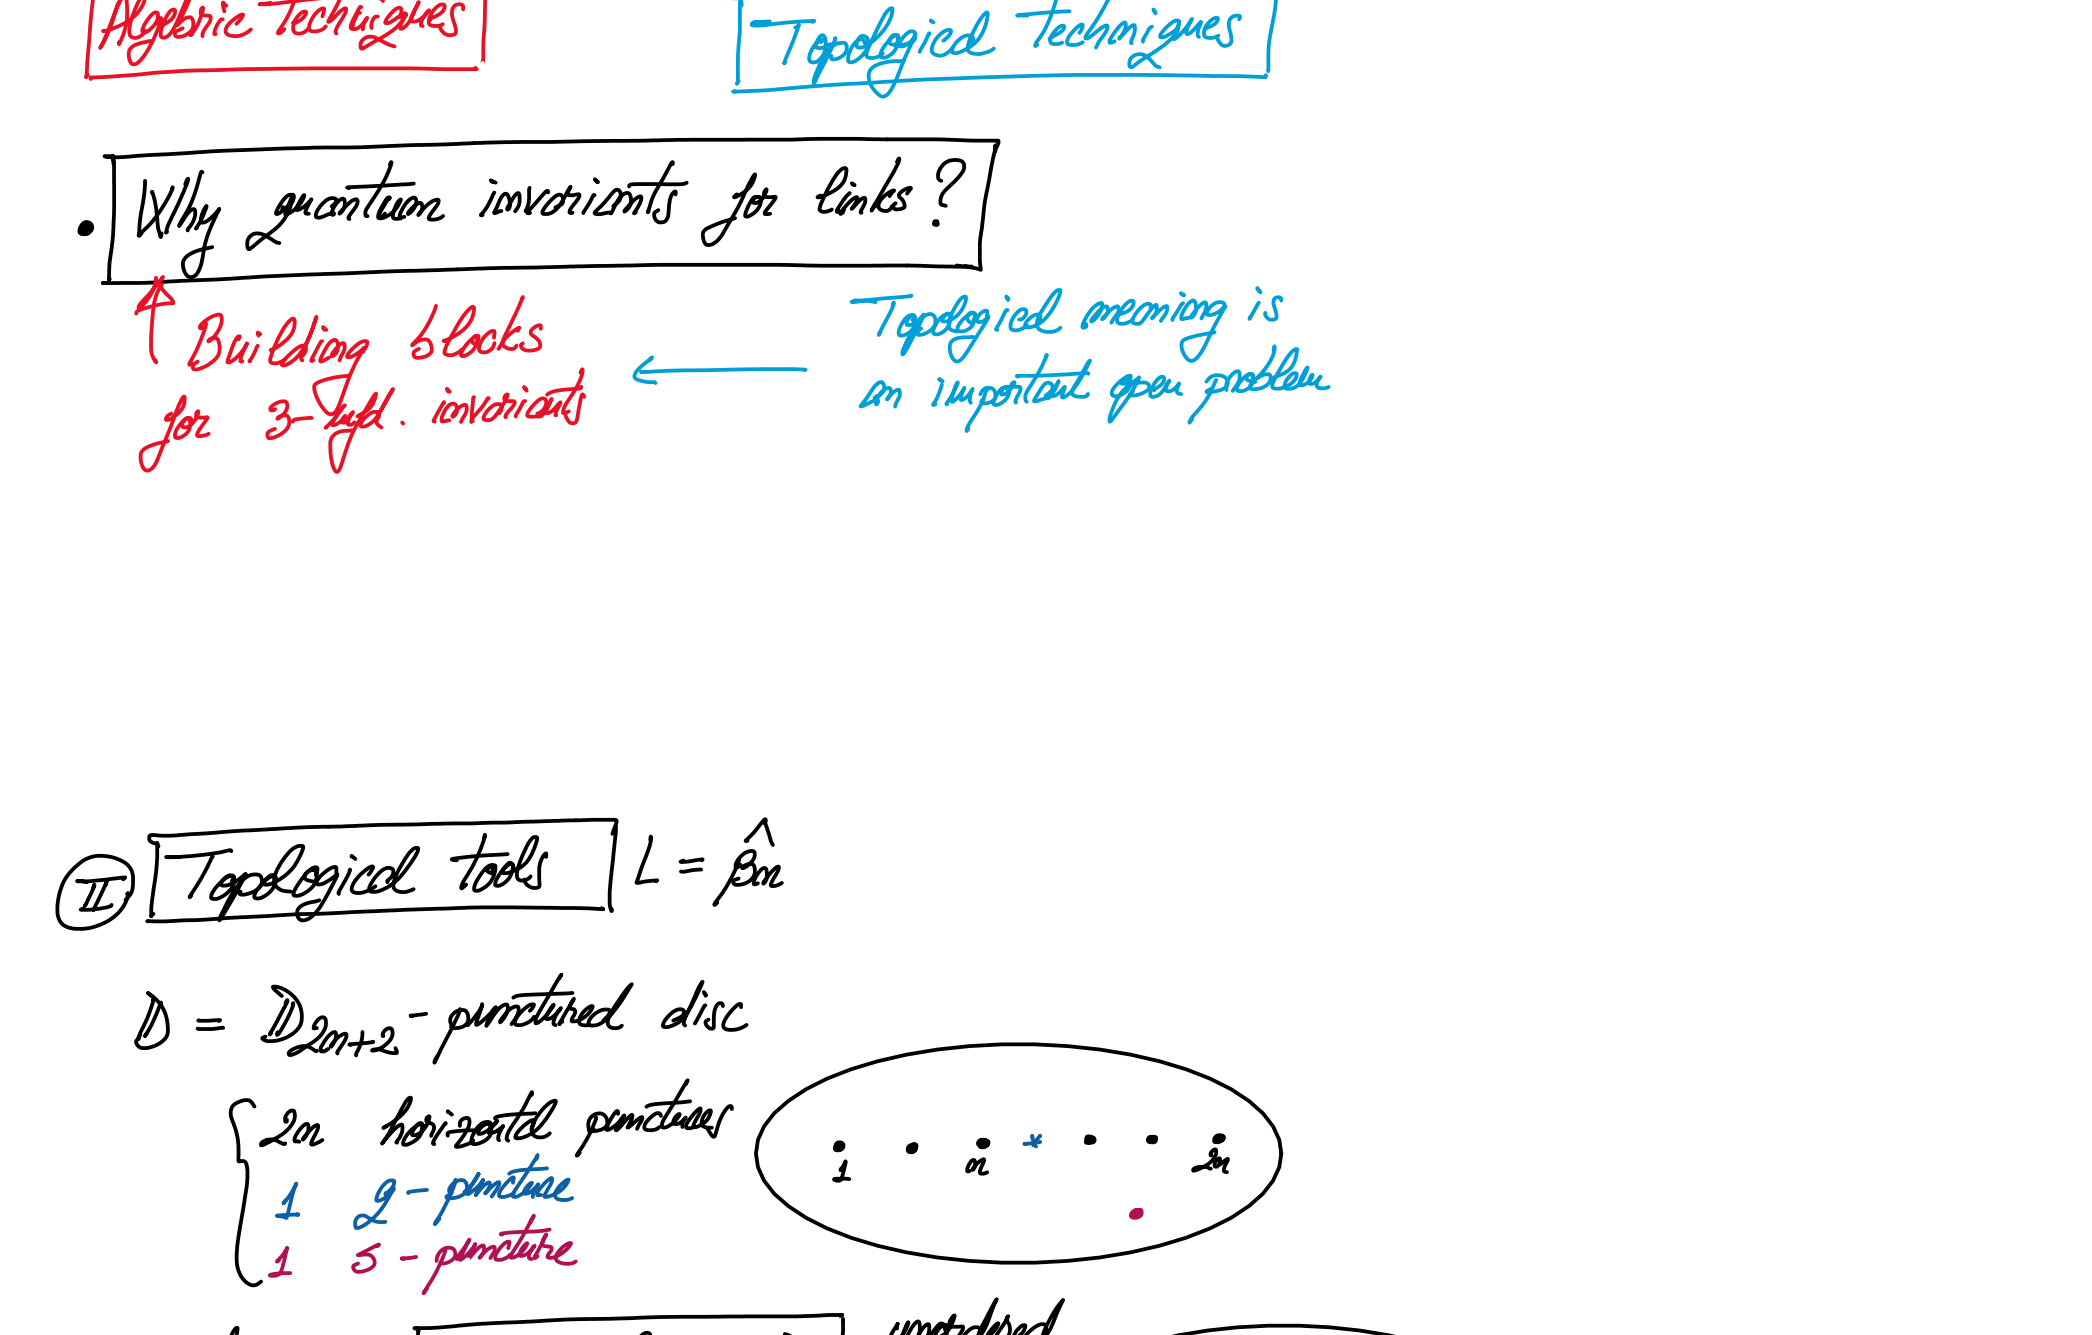 Algebric techniques
Topological techniques
• Why quantum invariants for links?
Building blocks
for 3-mfd. invariants
Topological meaning is
an important open problem
II Topological tools L = β̂n
𝔻 = 𝔻2n+2 - punctured disc
2n horizontal punctures
1 q - puncture
1 s - puncture
1 n * 2n
unordered